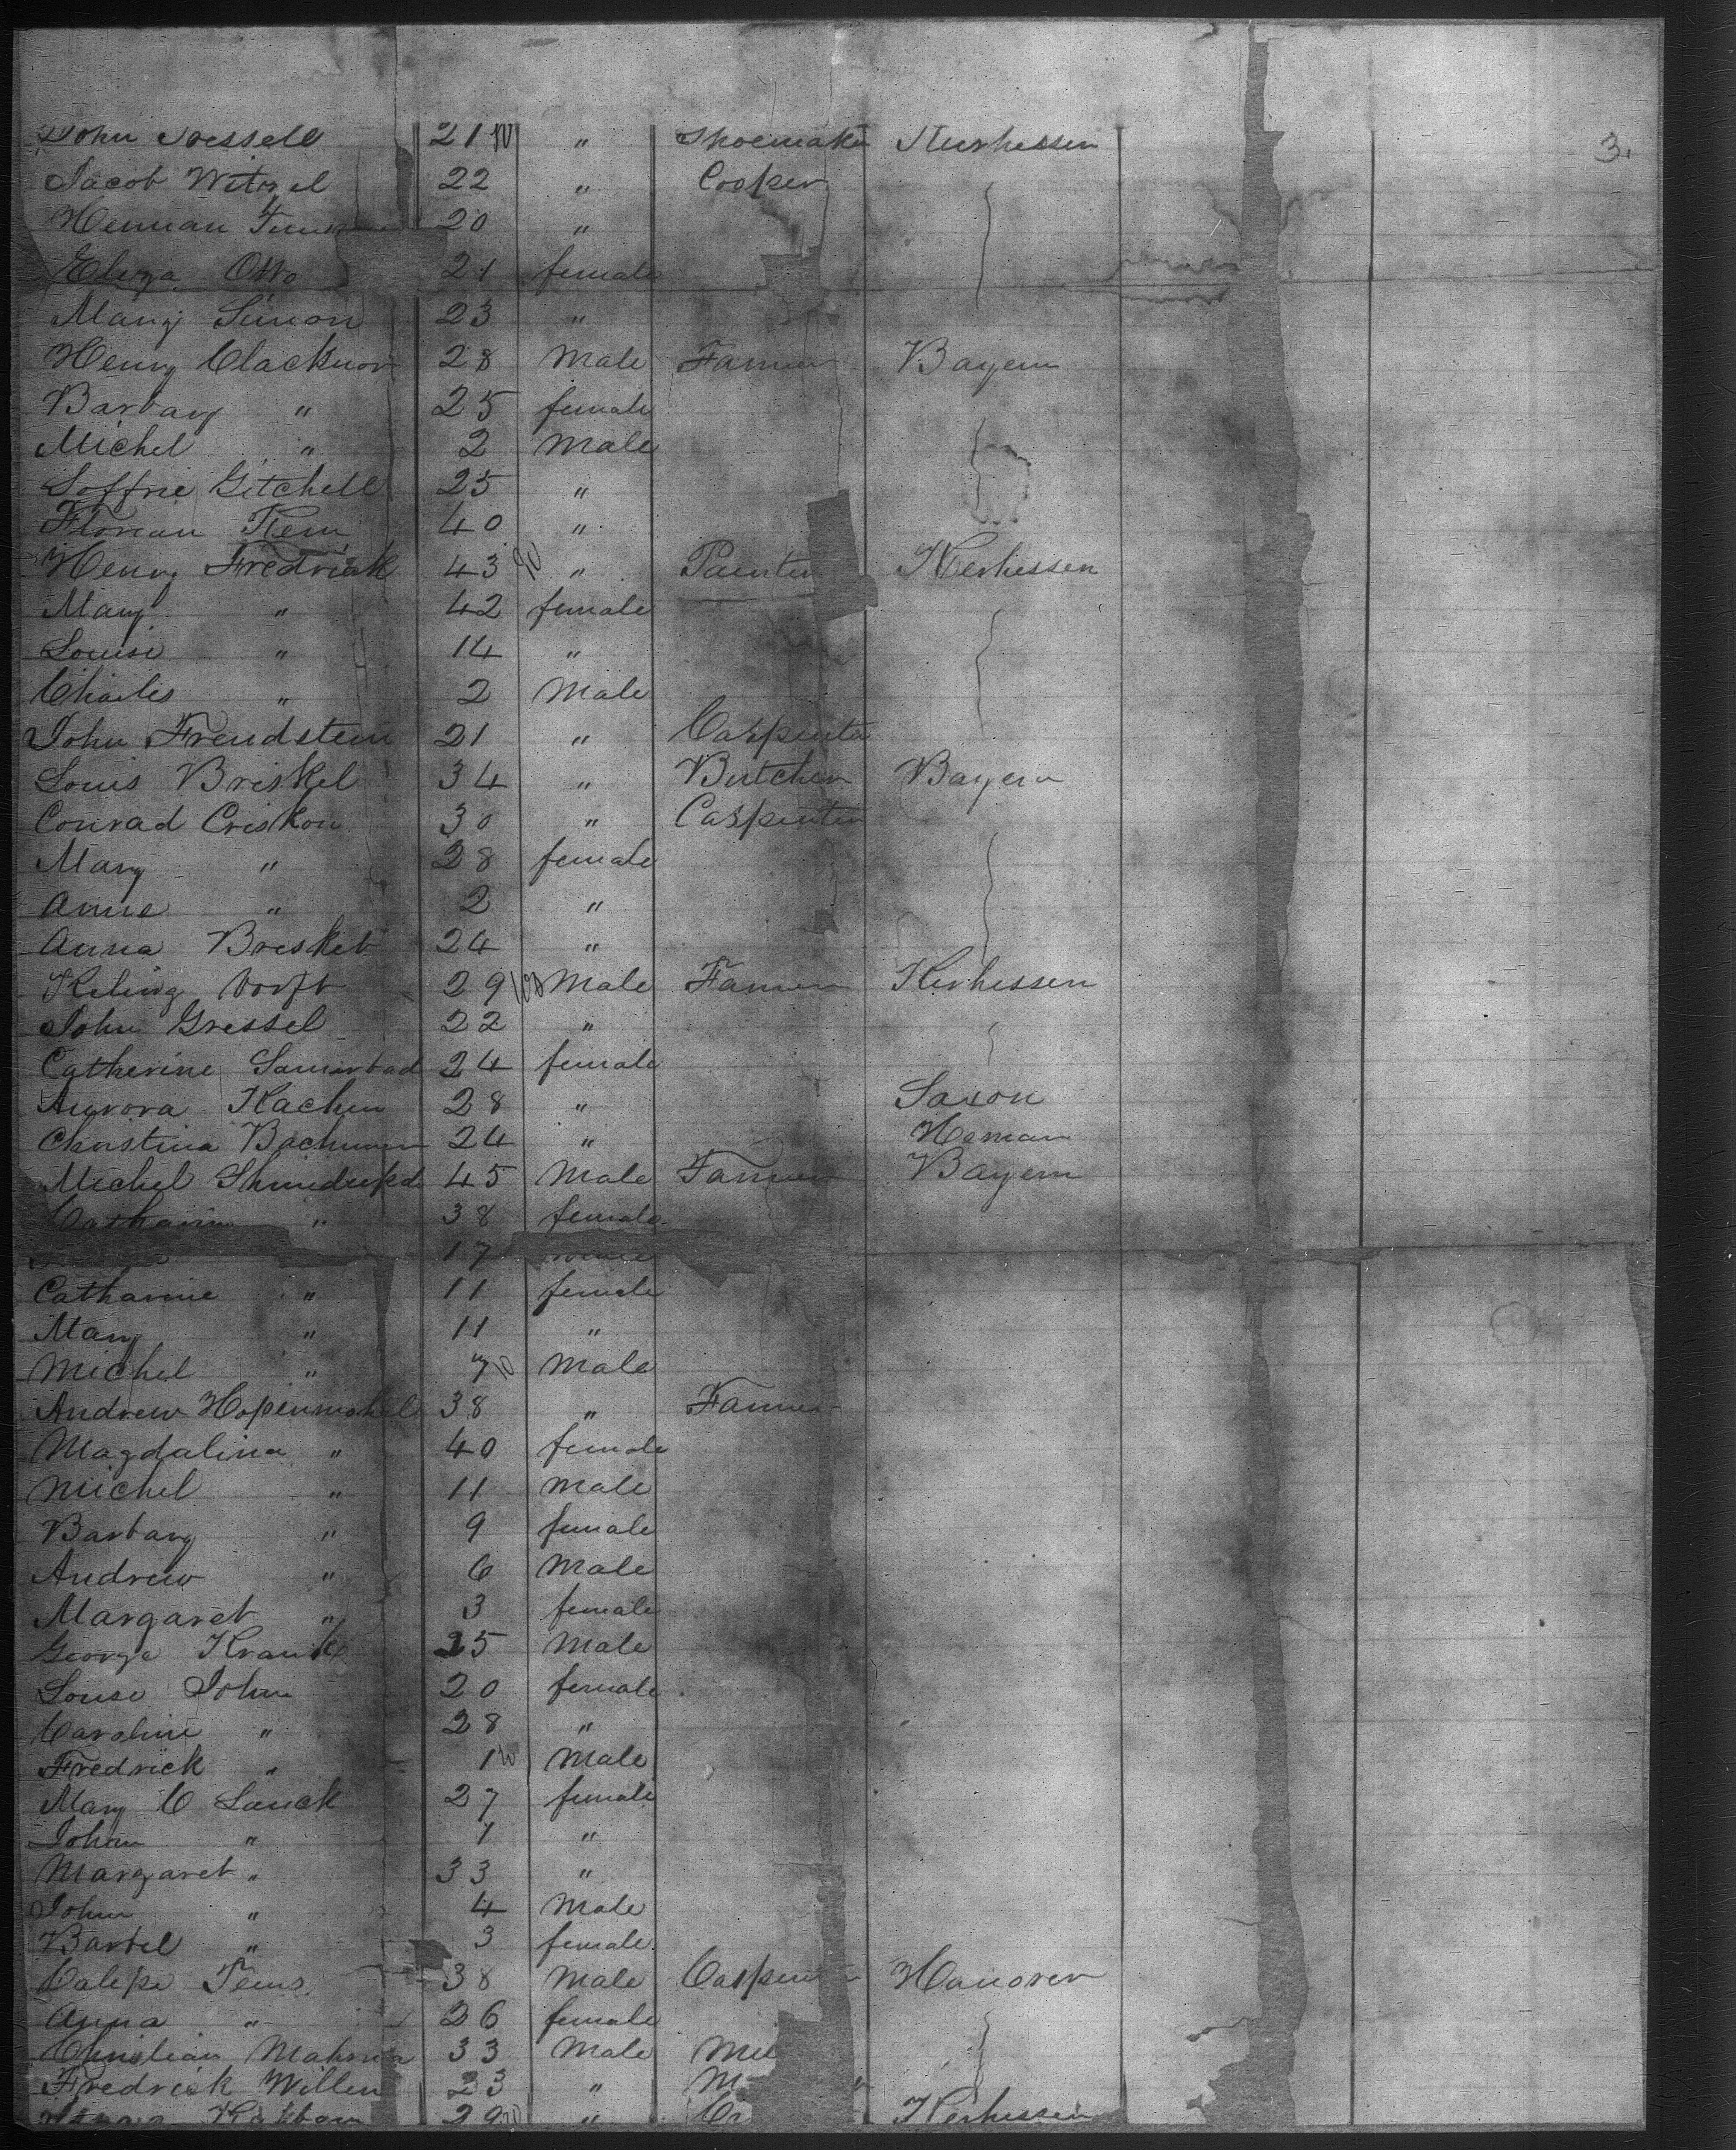 3.
John Nessell 21 " Shoemaker Kurhessen
Jacob Witzel 22 " Cooper
Herman 20 "
Eliza Otto 21 female
Mary Simon 23 "
Henry Clacknor 28 Male Farmer Bayern
Barbary " 25 female
Michel " 2 Male
Soffrie Gitchell 25 "
Florian Kem 40 "
Henry Fredrick 43 " Painter Kerhessen
Mary " 42 female
Louise " 14 "
Charles " 2 Male
John Freudstein 21 " Carpenter
Louis Briskel 34 " Butcher Bayern
Conrad Criskon 30 " Carpenter
Mary " 28 female
Anne " 2 "
Anna Brisket 24 "
Keling 29 Male Farmer Kerhessen
John Gressel 22 "
Catherine 24 female
Aurora Kachen 28 " Saxon
Christina Bachman 24 "
Michel 45 Male Farmer Bayern
Catharine " 38 female
17
Catharine " 11 female
Mary " 11 "
Michel " 7 Male
Andrew 38 " Farmer
Magdalina " 40 female
Michel " 11 Male
Barbary " 9 female
Andrew " 6 Male
Margaret " 3 female
George 25 Male
Louse John 20 female
Caroline " 28 "
Fredrick " 1 Male
Mary C Lauck 27 female
John " 1 "
Margaret " 33 "
John " 4 Male
Bartel " 3 female
Tems 38 Male Carpenter Hanover
Anna " 26 female
Christian 33 Male Mil
Fredrick Willen 23 " M "
29 " Kerhessen